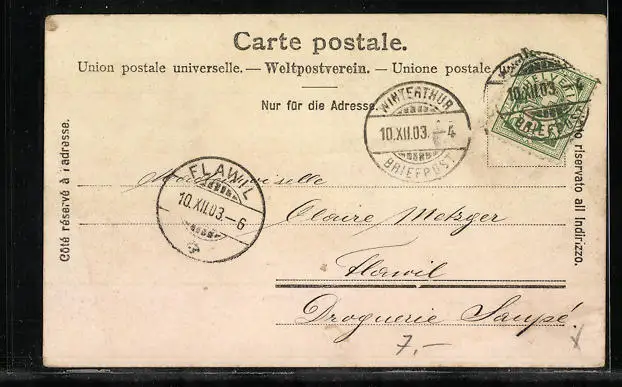 Carte postale.
Union postale universelle. — Weltpostverein. — Unione postale
Nur für die Adresse.
WINTERTHUR
10.XII.03.–4
BRIEFPOST
10.XII.03.
BRIEFPOST
HELVETIA
FLAWIL
10.XII.03.–6
Côté réservé à l'adresse.
riservato all Indirizzo.
Mademoiselle
Claire Metzger
Flawil
Droguerie Saupé.
7.–